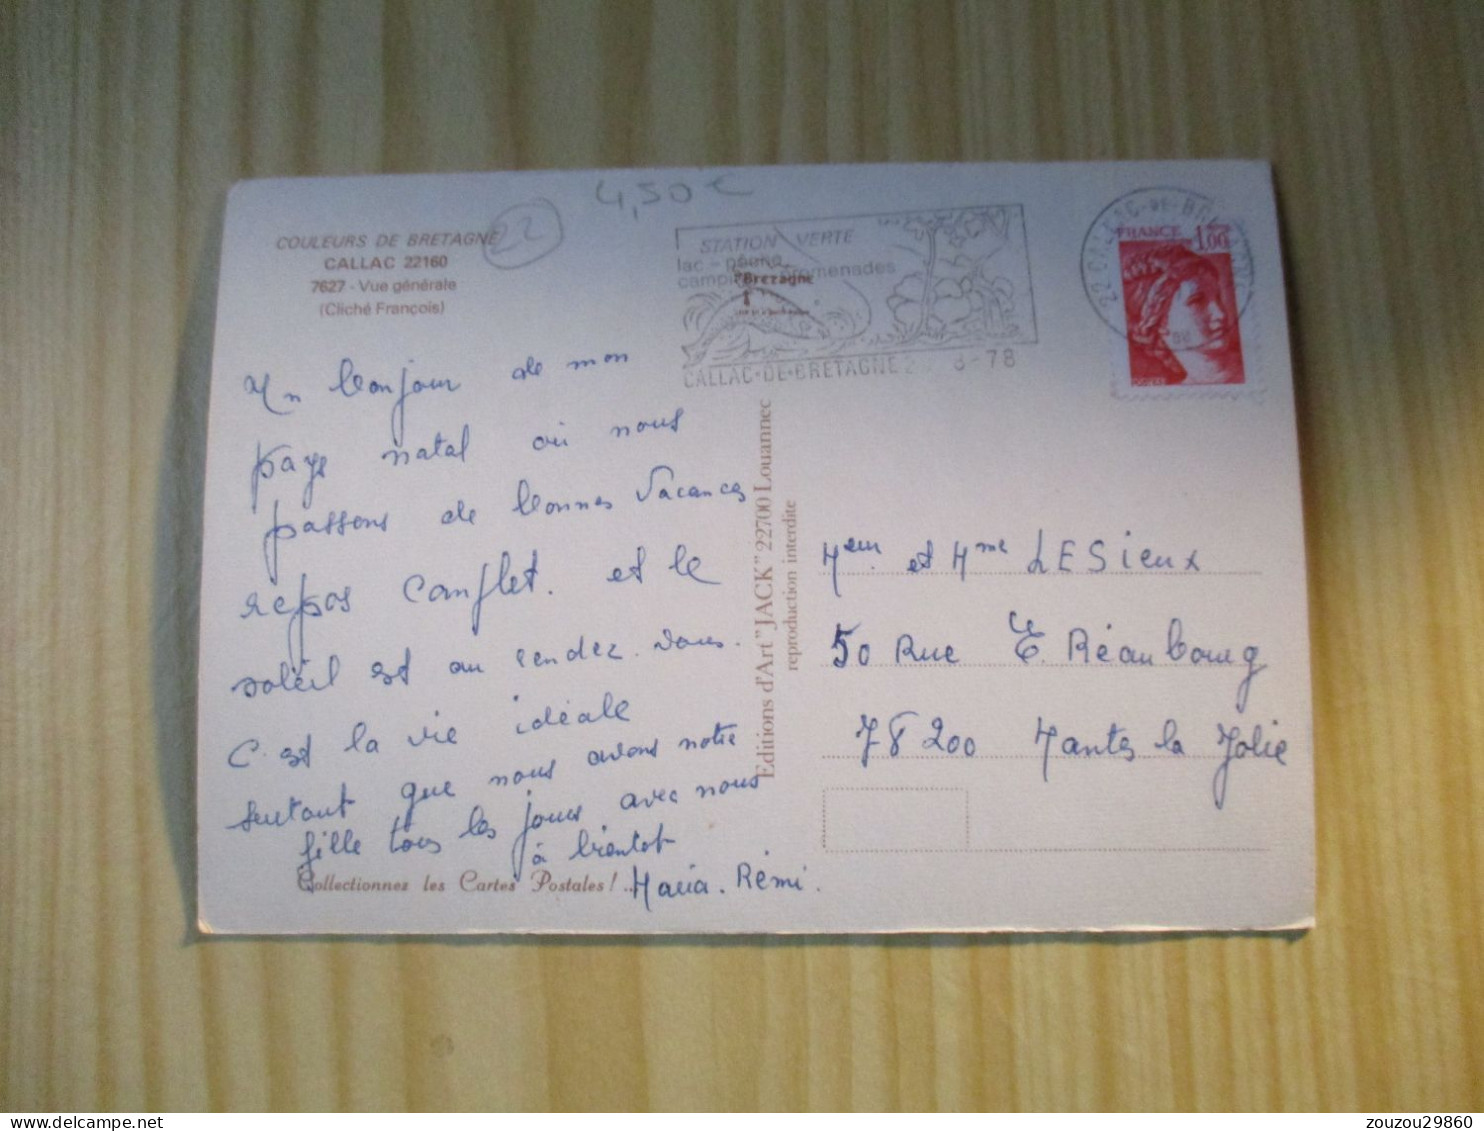 4,50€
22
COULEURS DE BRETAGNE
CALLAC 22160
7627 - Vue générale
(Cliché François)
STATION VERTE
lac - pêche
promenades
Bretagne
CALLAC-DE-BRETAGNE 8-78
22 CALLAC-DE-BRETAGNE
FRANCE 1,00
Un bonjour de mon
pays natal où nous
passons de bonnes vacances
repos complet. et le
soleil est au rendez-vous.
C'est la vie idéale
surtout que nous avons notre
fille tous les jours avec nous
à bientot
Maria. Rémi.
Collectionnez les Cartes Postales ! ...
Editions d'Art "JACK" 22700 Louannec
reproduction interdite
Meur et Mme LESieux
50 Rue Réaubourg
78200 Mantes la Jolie
zouzou29860